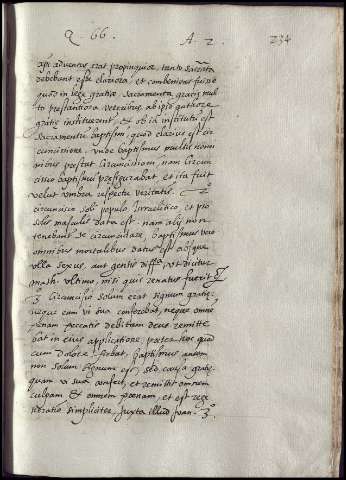 Q. 66. A. 2. 234
adventus erat propinquior, tanto sacramta
debebant esse clariora, et conveniens fuisse
quod in lege gratiæ sacramenta gratiæ mul
to præstantiora veteribus ab ipso authore
gratiæ instituerent, et ob id institutū est
sacramentū baptismi, quod clarius est cir
cuncisione, unde baptismus pluribus nomi
nibus præstat circuncisioni, nam circun
cisio baptismū præfigurabat, et ita fuit
velut umbra respectu veritatis. 2º
circuncisio soli populo Israelitico et pro
solis masculis data est. nam alii non
tenebant se circuncidere, baptismus vero
omnibus mortalibus datus est absque
ulla sexus, aut gentis diffª, ut dicitur
ultimo, nisi quis renatus fuerit &
3º Circuncisio solum erat signum gratiæ,
neque enim vi sua conferebat, neque omnē
pœnam peccatis debitam deus remitte
bat in eius applicatione, præterea quod
cum dolore fiebat, baptismus autem
non solum signum est, sed causa gratiæ
quam vi sua confert, et remittit omnem
culpam et omnem pœnam, et est rege
neratio simpliciter, juxta illud Joan. 3º